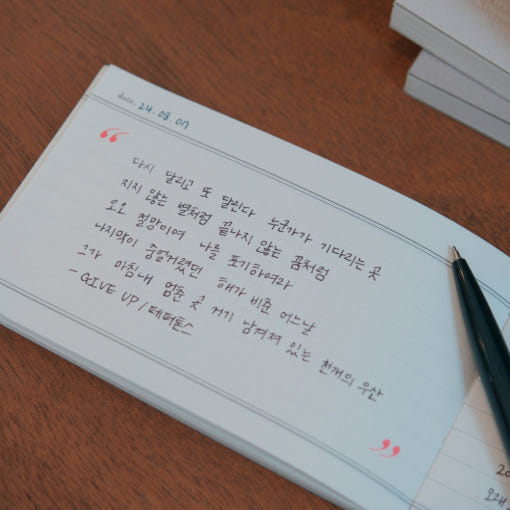 date. 24.08.07
다시 달리고 또 달린다 누군가가 기다리는 곳
지지 않는 별처럼 끝나지 않는 꿈처럼
오오 절망이여 나를 포기하여라
나지막이 중얼거렸던 해가 비춘 어느날
그가 마침내 멈춘 곳 거기 남겨져 있는 천개의 우산
- GIVE UP / 페퍼톤스
20
오래